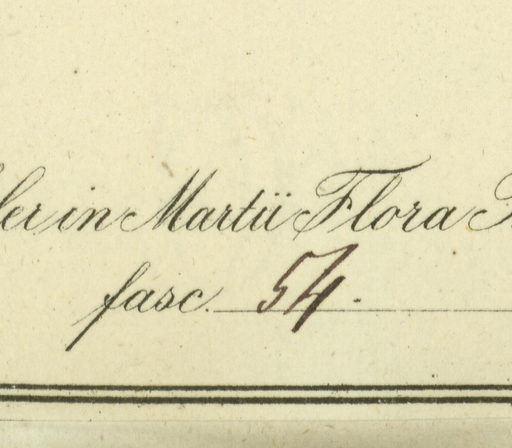 ler in Martii Flora
fasc. 54.